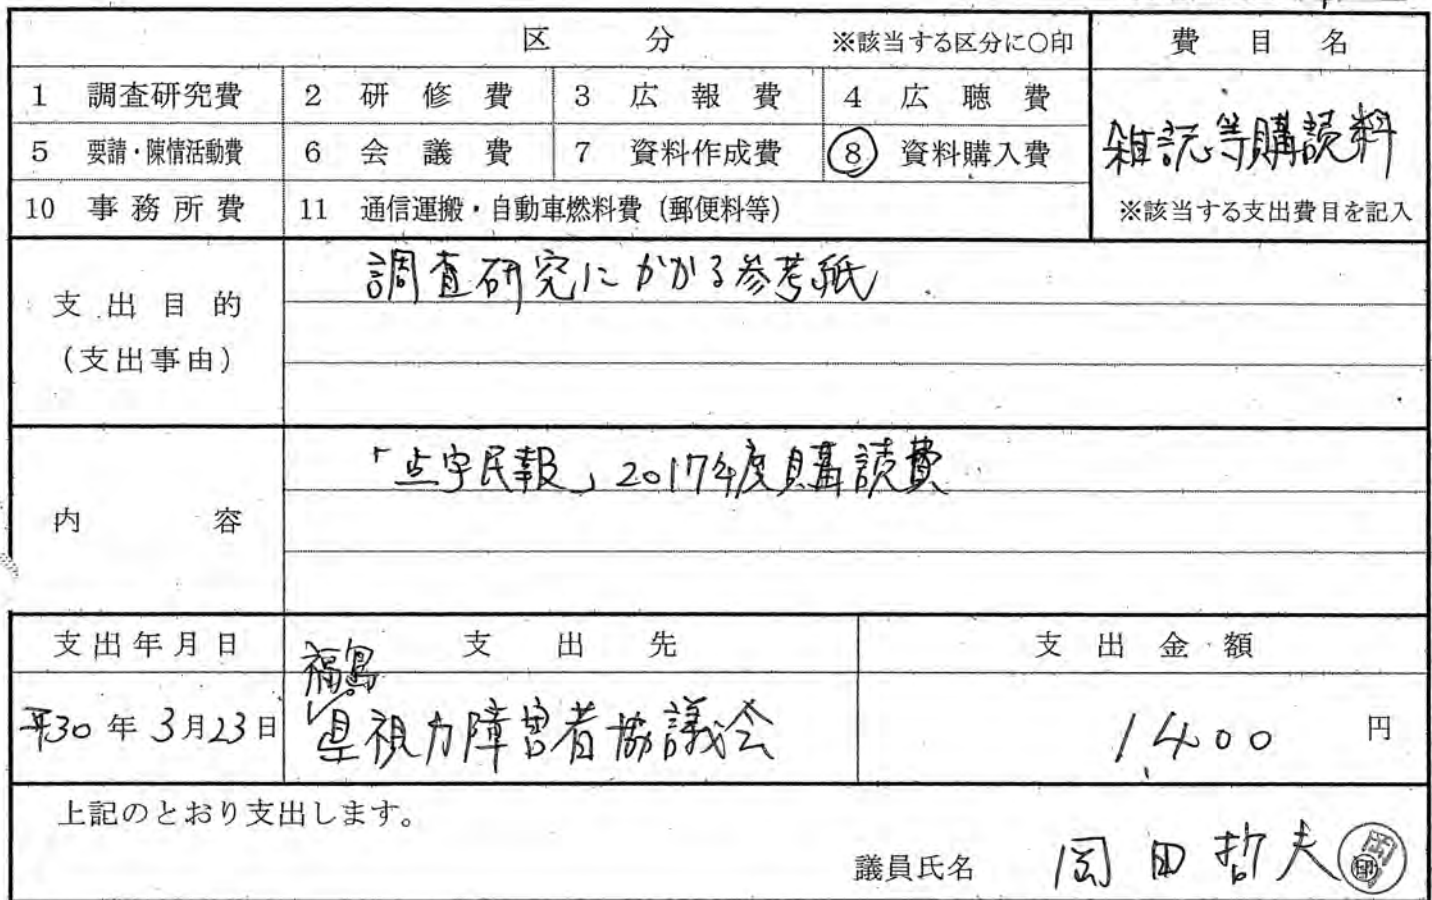 区 分 ※該当する区分に○印 費 目 名
1 調査研究費 2 研 修 費 3 広 報 費 4 広 聴 費
5 要請・陳情活動費 6 会 議 費 7 資料作成費 8 資料購入費 雑誌等購読料
10 事務所費 11 通信運搬・自動車燃料費（郵便料等） ※該当する支出費目を記入
支出目的
（支出事由）
調査研究にかかる参考紙
内 容
「点字民報」2017年度購読費
支出年月日 支 出 先 支 出 金 額
福島
平30年3月23日 県視力障害者協議会 1,400 円
上記のとおり支出します。
議員氏名 岡田哲夫 印